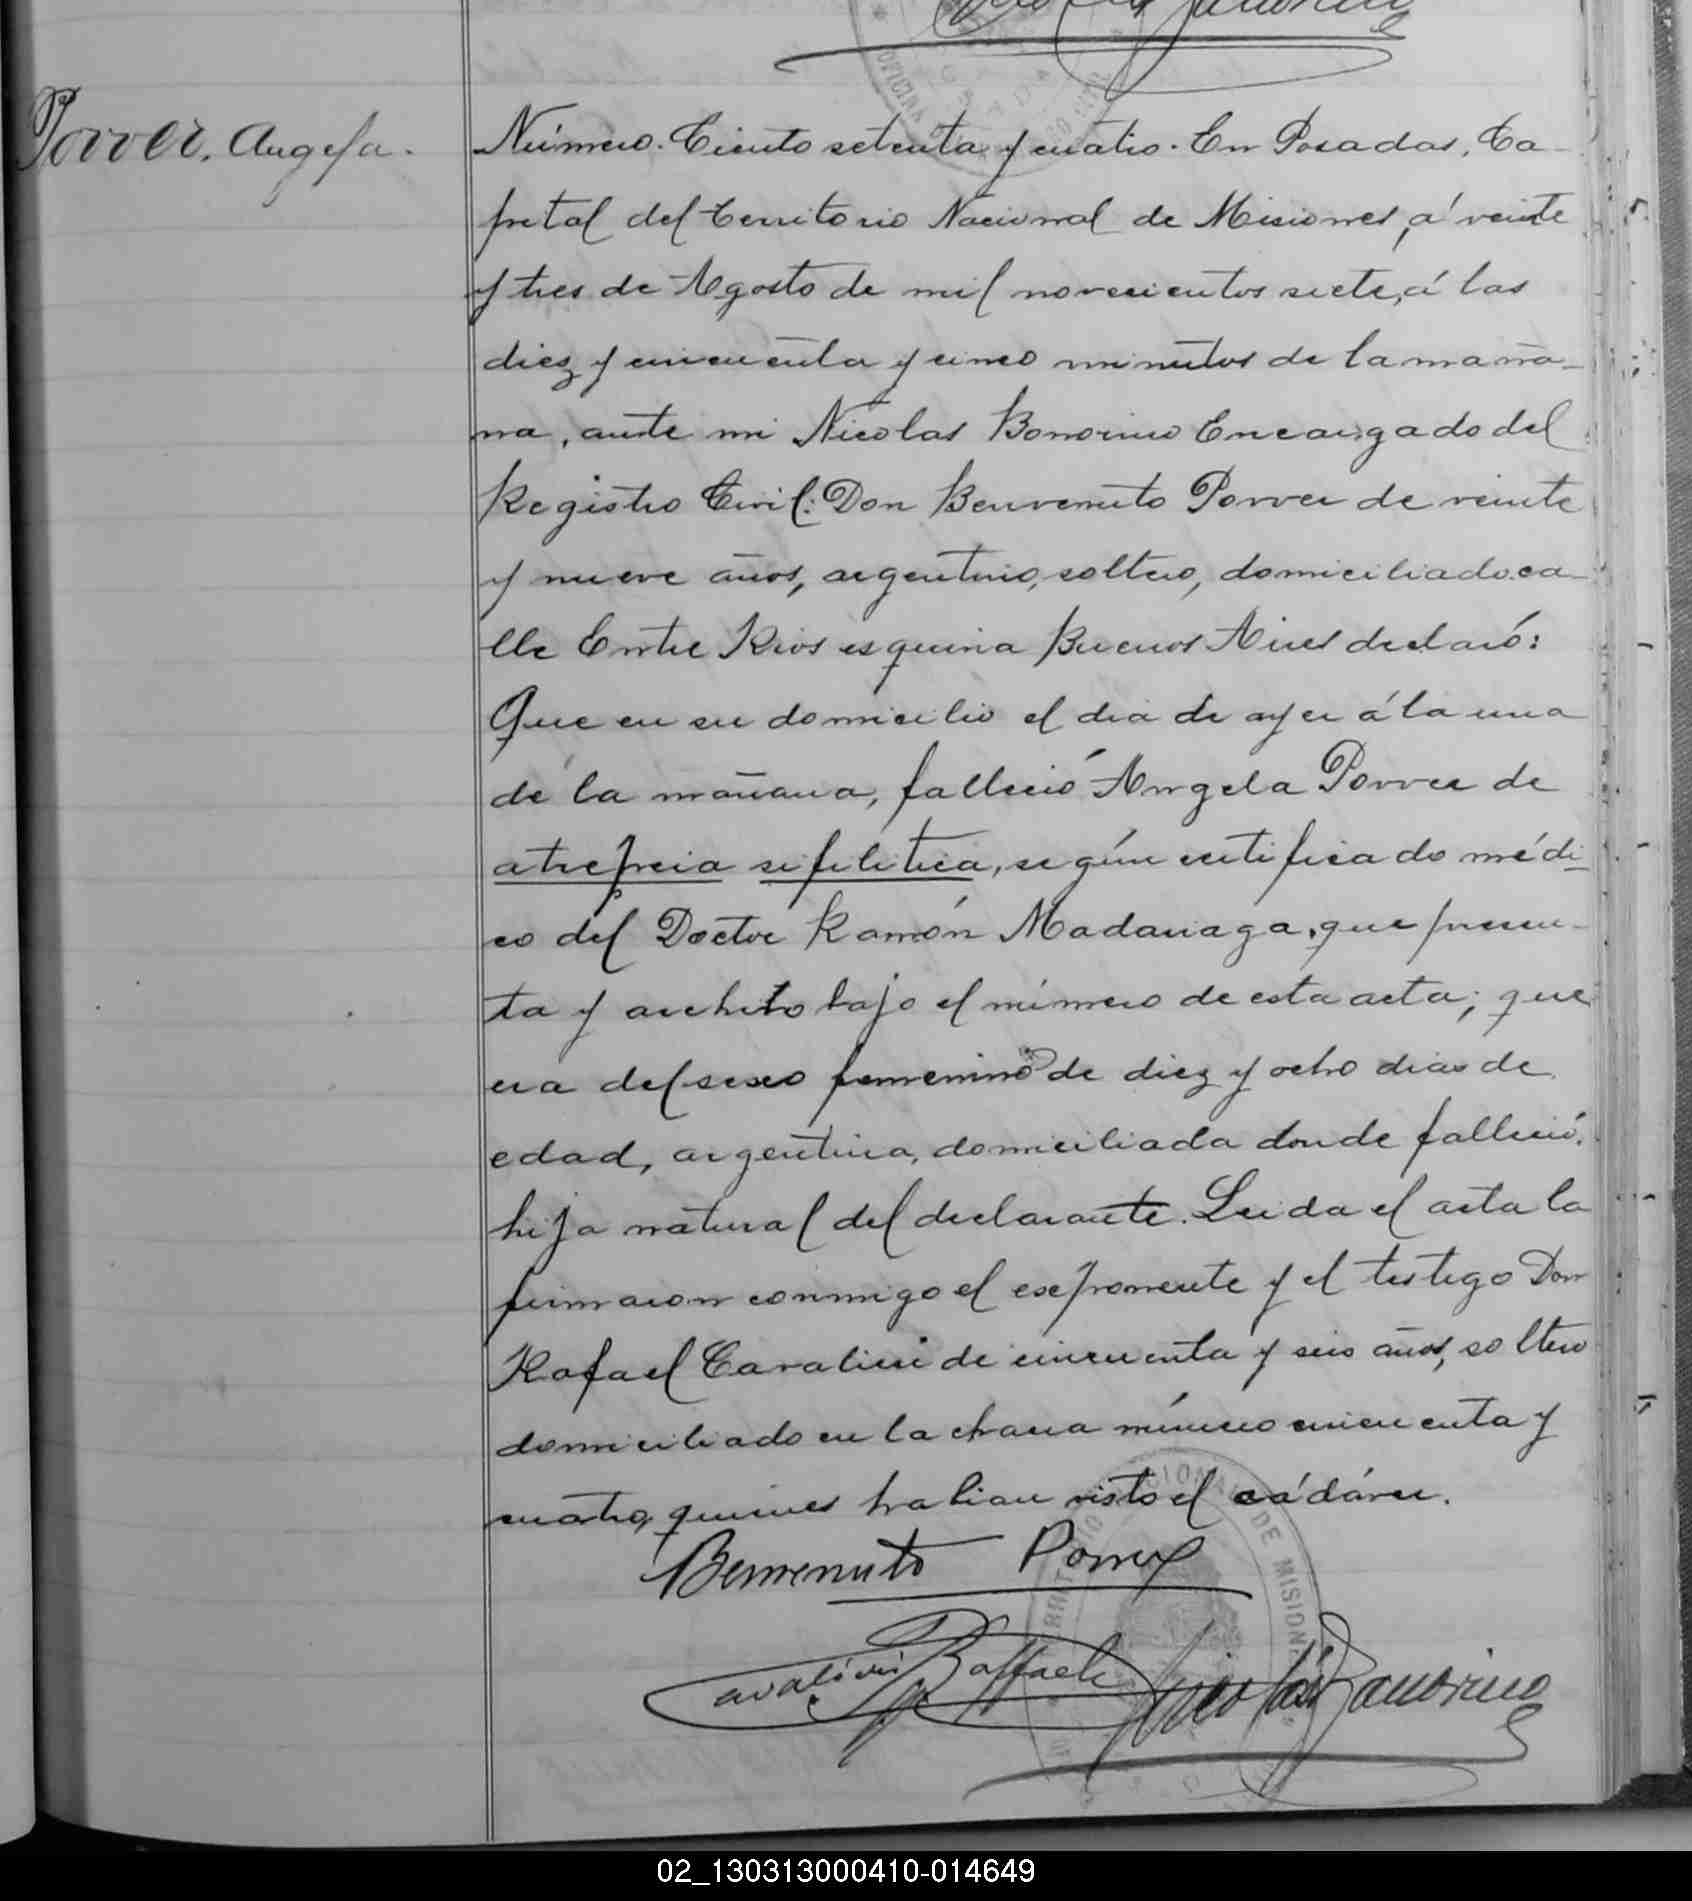 Porrer, Angela.
Número. Ciento setenta y cuatro. En Posadas, Ca-
pital del Territorio Nacional de Misiones, á veinte
y tres de Agosto de mil novecientos siete, á las
diez y cincuenta y cinco minutos de la maña-
na, ante mi Nicolas Bonorino Encargado del
Registro Civil: Don Benvenuto Porrer de veinte
y nueve años, argentino, soltero, domiciliado ca-
lle Entre Rios esquina Buenos Aires declaró:
Que en su domicilio el dia de ayer á la una
de la mañana, falleció Angela Porrer de
atrepcia sifilitica, según certificado médi-
co del Doctor Ramón Madariaga, que presen-
ta y archivo bajo el número de esta acta; que
era del sexo femenino de diez y ocho dias de
edad, argentina, domiciliada donde falleció,
hija natural del declarante. Leida el acta la
firmaron conmigo el exponente y el testigo Don
Rafael Cavalieri de cincuenta y seis años, soltero
domiciliado en la chacra número cincuenta y
cuatro, quienes habian visto el cádáver.
Benvenuto Porrer
Cavalieri Raffaele
Nicolás Bonorino
DE MISION
02_130313000410-014649